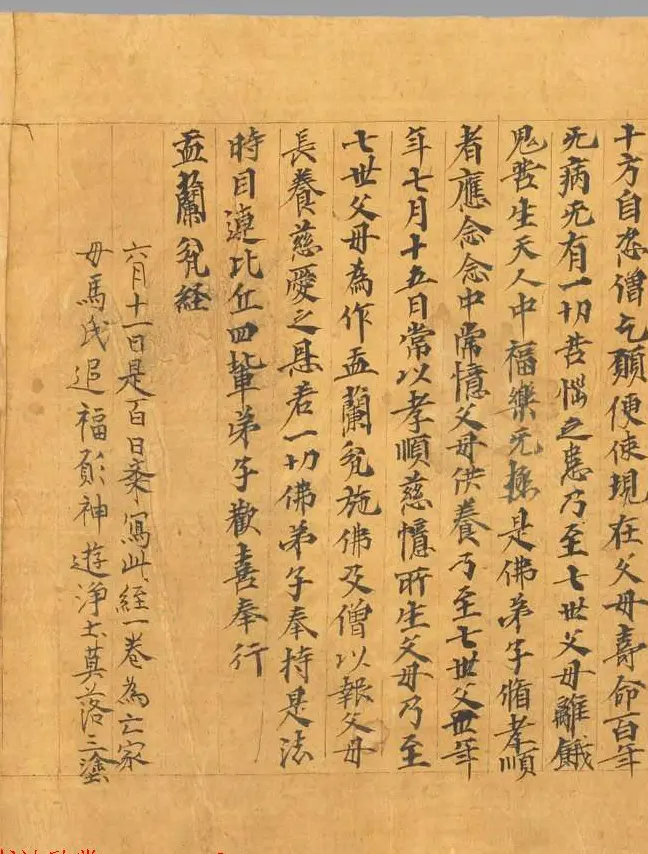 十方自恣僧乞願便使現在父母壽命百年
无病无有一切苦惱之患乃至七世父母離餓
鬼苦生天人中福樂无極是佛弟子脩孝順
者應念念中常憶父母供養乃至七世父世年
年七月十五日常以孝順慈憶所生父母乃至
七世父母為作盂蘭瓫施佛及僧以報父母
長養慈愛之恩若一切佛弟子奉持是法
時目連比丘四輩弟子歡喜奉行
盂蘭瓫経
六月十一日是百日齋寫此経一卷為亡家
母馬氏追福願神遊淨土莫落三塗